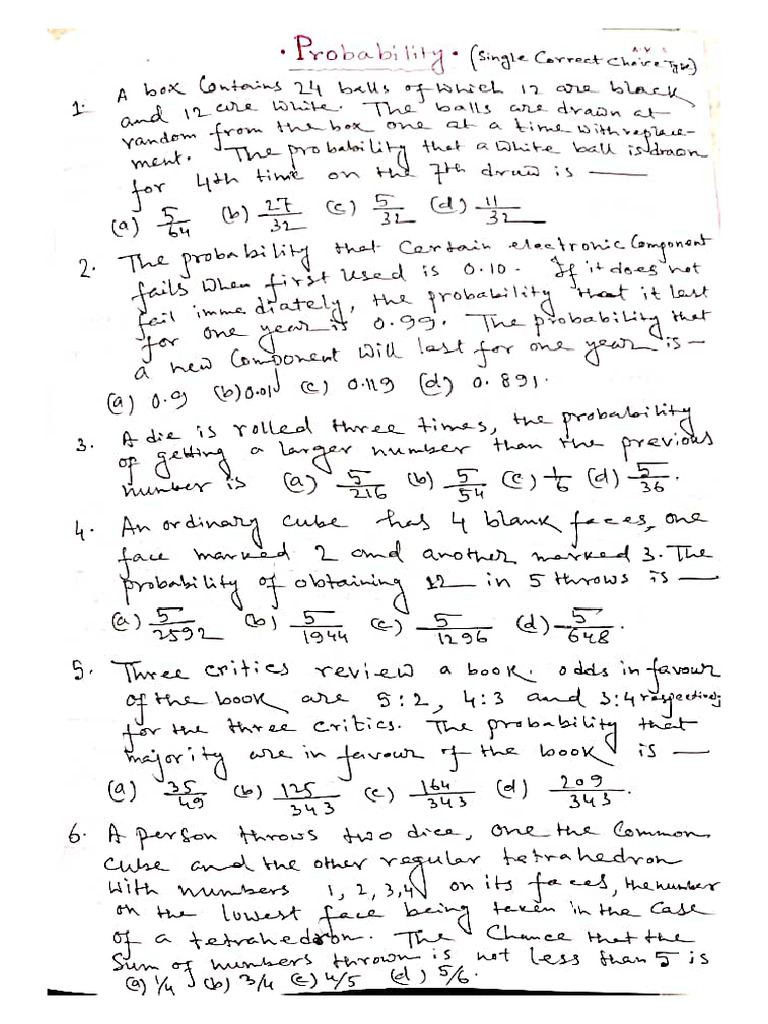 • Probability • (Single Correct Choice Type)
1. A box contains 24 balls of which 12 are black
and 12 are white. The balls are drawn at
random from the box one at a time with replace-
ment. The probability that a white ball is drawn
for 4th time on the 7th draw is —
(a) 5/64 (b) 27/32 (c) 5/32 (d) 11/32
2. The probability that certain electronic component
fails when first used is 0.10. If it does not
fail immediately, the probability that it last
for one year is 0.99. The probability that
a new component will last for one year is —
(a) 0.9 (b) 0.01 (c) 0.119 (d) 0.891.
3. A die is rolled three times, the probability
of getting a larger number than the previous
number is (a) 5/216 (b) 5/54 (c) 1/6 (d) 5/36.
4. An ordinary cube has 4 blank faces, one
face marked 2 and another marked 3. The
probability of obtaining 12 in 5 throws is —
(a) 5/2592 (b) 5/1944 (c) 5/1296 (d) 5/648.
5. Three critics review a book. odds in favour
of the book are 5:2, 4:3 and 3:4 respectively
for the three critics. The probability that
majority are in favour of the book is —
(a) 35/49 (b) 125/343 (c) 164/343 (d) 209/343.
6. A person throws two dice, one the common
cube and the other regular tetrahedron
with numbers 1, 2, 3, 4 on its faces, the number
on the lowest face being taken in the case
of a tetrahedron. The Chance that the
Sum of numbers thrown is not less than 5 is
(a) 1/4 (b) 3/4 (c) 4/5 (d) 5/6.